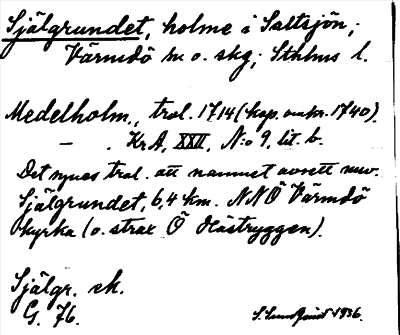 Själgrundet, holme i Saltsjön;
Värmdö sn o. skg; Sthlms l.
Medelholm., trol. 1714 (kop. omkr. 1740).
— . Kr A, XXII, N:o 9, lit. b.
Det synes trol. att namnet avsett nuv.
Själgrundet, 6,4 km. NNÖ Värmdö
kyrka (o. strax Ö Hästryggen).
Själgr. ek.
G. 76.
S. 1936.